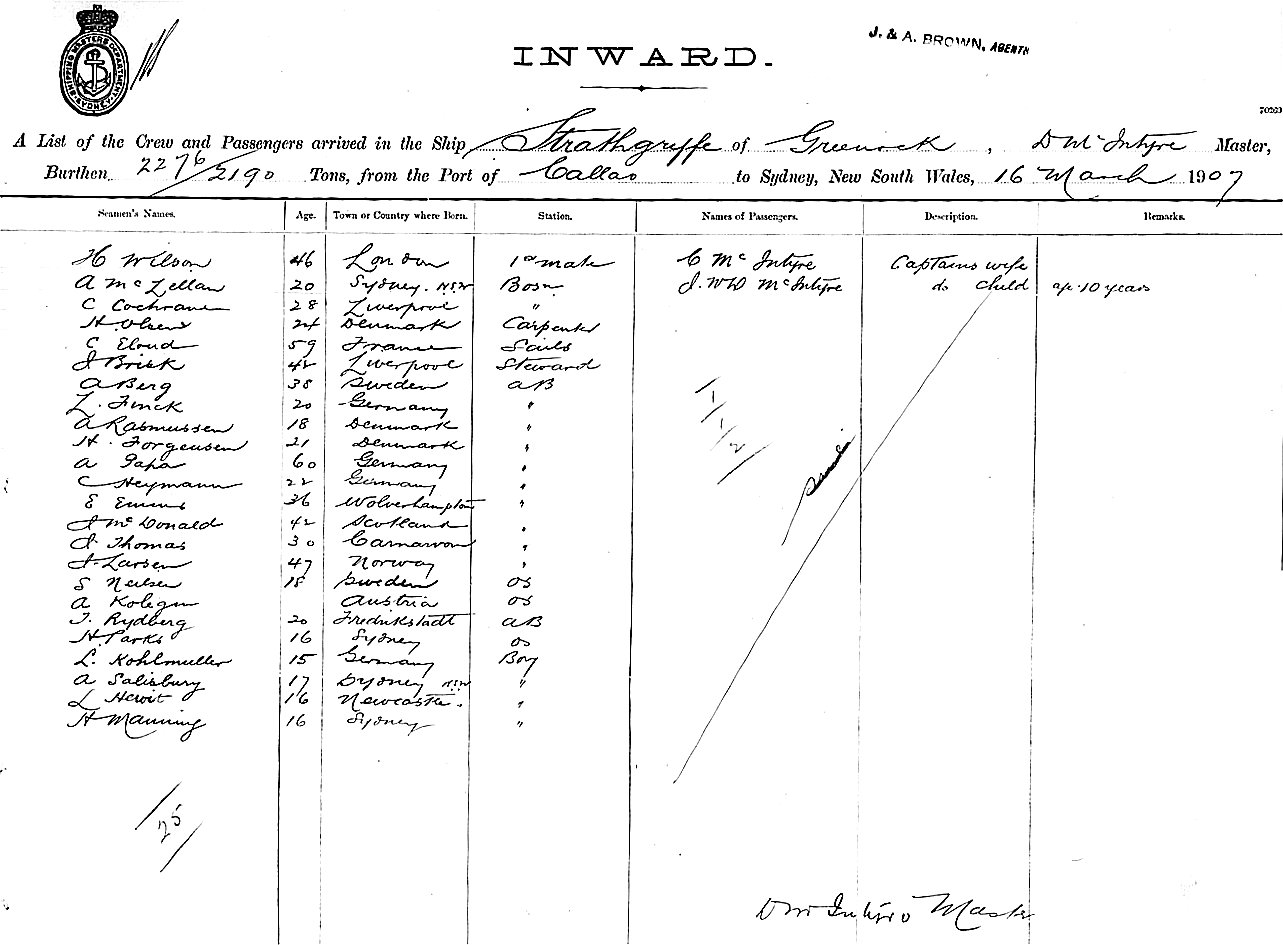 SHIPPING MASTERS DEPARTMENT. SYDNEY.
J. & A. BROWN, AGENTS
INWARD.
70263
A List of the Crew and Passengers arrived in the Ship Strathgryffe of Greenock, D McIntyre Master,
Burthen 2276/2190 Tons, from the Port of Callao to Sydney, New South Wales, 16 March 1907
Seamen's Names. Age. Town or Country where Born. Station. Names of Passengers. Description. Remarks.
H Wilson 46 London 1st mate C McIntyre Captains wife
A McLellan 20 Sydney. NSW Bosn J. WD McIntyre do Child age 10 years
C Cochrane 28 Liverpool "
H. Olsen 24 Denmark Carpenter
C Eloud 59 France Sails
J Brisk 42 Liverpool Steward
A Berg 38 Sweden AB
L. Finck 20 Germany "
A Rasmussen 18 Denmark "
H. Jorgensen 21 Denmark "
A Papa 60 Germany "
C Heymann 22 Germany "
E Emms 36 Wolverhampton "
J McDonald 42 Scotland "
J Thomas 30 Carnarvon "
J. Larsen 47 Norway "
S Neilsen 18 Sweden OS
A Austria OS
T. Rydberg 20 Fredrikstadt AB
H. Parks 16 Sydney OS
L. Kohlmuller 15 Germany Boy
A Salisbury 17 Sydney NSW "
L Hewit 16 Newcastle. "
H Manning 16 Sydney "
1/1/2/
/25/
D McIntyre Master